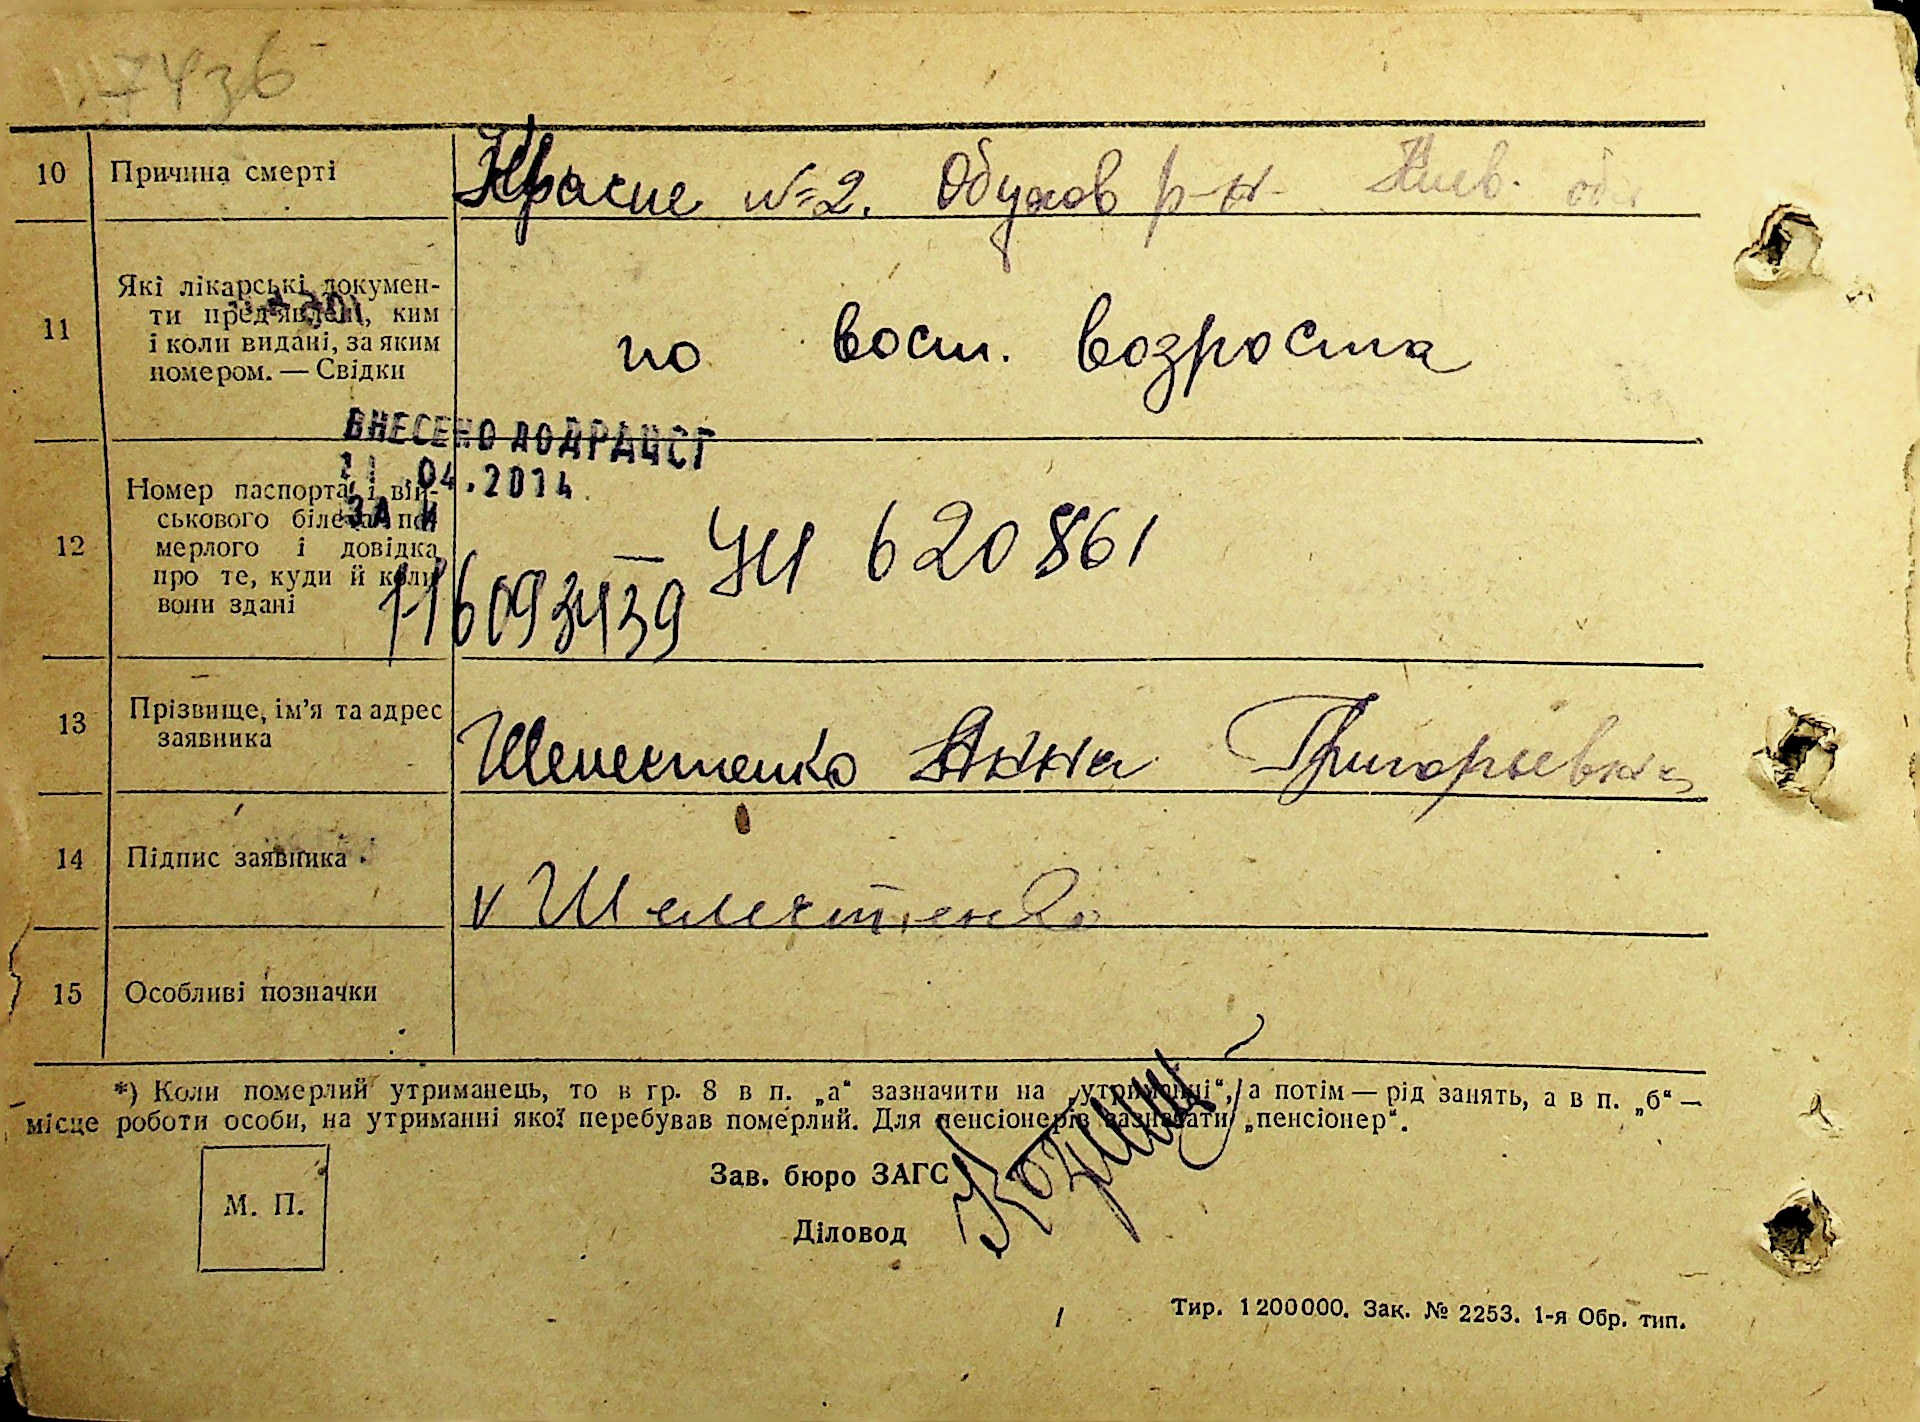 17436
10 Причина смерті Красне №2. Обухов р-н Киев. обл
11 Які лікарські докумен-
ти пред'явлені, ким
і коли видані, за яким
номером. — Свідки
по восст. возроста
ВНЕСЕНО ДО ДРАЦСГ
21.04.2014
ЗА №
116093439
12 Номер паспорта і вій-
ськового білета по-
мерлого і довідка
про те, куди й коли
вони здані
620861
13 Прізвище, ім'я та адрес
заявника
Шелестенко Анна Григорьевна
14 Підпис заявника
V Шелестенко
15 Особливі позначки
*) Коли померлий утриманець, то в гр. 8 в п. „а“ зазначити на „утриманні“, а потім — рід занять, а в п. „б“ —
місце роботи особи, на утриманні якої перебував померлий. Для пенсіонерів зазначати „пенсіонер“.
М. П.
Зав. бюро ЗАГС
Діловод
Тир. 1200000. Зак. № 2253. 1-я Обр. тип.